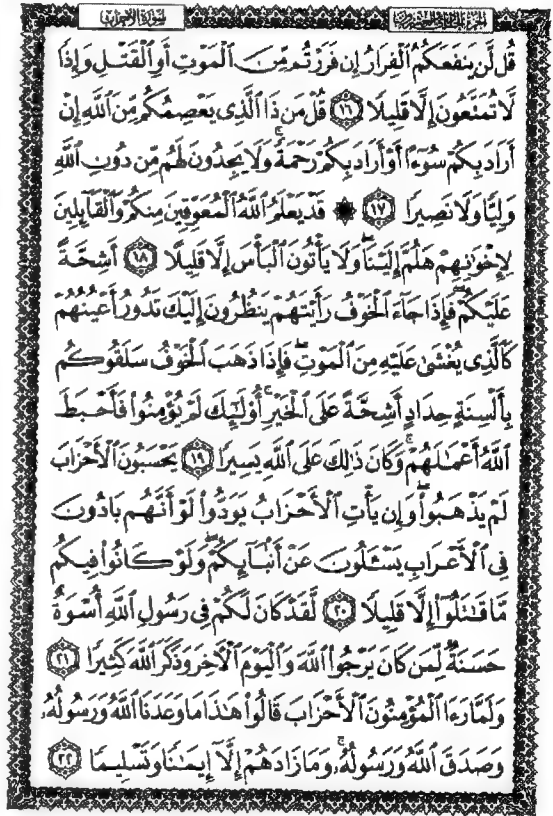 الجزء الحادي والعشرون
سورة الأحزاب
قُل لَّن يَنفَعَكُمُ ٱلْفِرَارُ إِن فَرَرْتُم مِّنَ ٱلْمَوْتِ أَوِ ٱلْقَتْلِ وَإِذًا
لَّا تُمَتَّعُونَ إِلَّا قَلِيلًا ١٦ قُلْ مَن ذَا ٱلَّذِى يَعْصِمُكُم مِّنَ ٱللَّهِ إِنْ
أَرَادَ بِكُمْ سُوٓءًا أَوْ أَرَادَ بِكُمْ رَحْمَةً ۚ وَلَا يَجِدُونَ لَهُم مِّن دُونِ ٱللَّهِ
وَلِيًّا وَلَا نَصِيرًا ١٧ ۞ قَدْ يَعْلَمُ ٱللَّهُ ٱلْمُعَوِّقِينَ مِنكُمْ وَٱلْقَآئِلِينَ
لِإِخْوَٰنِهِمْ هَلُمَّ إِلَيْنَا ۖ وَلَا يَأْتُونَ ٱلْبَأْسَ إِلَّا قَلِيلًا ١٨ أَشِحَّةً
عَلَيْكُمْ ۖ فَإِذَا جَآءَ ٱلْخَوْفُ رَأَيْتَهُمْ يَنظُرُونَ إِلَيْكَ تَدُورُ أَعْيُنُهُمْ
كَٱلَّذِى يُغْشَىٰ عَلَيْهِ مِنَ ٱلْمَوْتِ ۖ فَإِذَا ذَهَبَ ٱلْخَوْفُ سَلَقُوكُم
بِأَلْسِنَةٍ حِدَادٍ أَشِحَّةً عَلَى ٱلْخَيْرِ ۚ أُو۟لَٰٓئِكَ لَمْ يُؤْمِنُوا۟ فَأَحْبَطَ
ٱللَّهُ أَعْمَٰلَهُمْ ۚ وَكَانَ ذَٰلِكَ عَلَى ٱللَّهِ يَسِيرًا ١٩ يَحْسَبُونَ ٱلْأَحْزَابَ
لَمْ يَذْهَبُوا۟ ۖ وَإِن يَأْتِ ٱلْأَحْزَابُ يَوَدُّوا۟ لَوْ أَنَّهُم بَادُونَ
فِى ٱلْأَعْرَابِ يَسْـَٔلُونَ عَنْ أَنۢبَآئِكُمْ ۖ وَلَوْ كَانُوا۟ فِيكُم
مَّا قَٰتَلُوٓا۟ إِلَّا قَلِيلًا ٢٠ لَّقَدْ كَانَ لَكُمْ فِى رَسُولِ ٱللَّهِ أُسْوَةٌ
حَسَنَةٌ لِّمَن كَانَ يَرْجُوا۟ ٱللَّهَ وَٱلْيَوْمَ ٱلْءَاخِرَ وَذَكَرَ ٱللَّهَ كَثِيرًا ٢١
وَلَمَّا رَءَا ٱلْمُؤْمِنُونَ ٱلْأَحْزَابَ قَالُوا۟ هَٰذَا مَا وَعَدَنَا ٱللَّهُ وَرَسُولُهُۥ
وَصَدَقَ ٱللَّهُ وَرَسُولُهُۥ ۚ وَمَا زَادَهُمْ إِلَّآ إِيمَٰنًا وَتَسْلِيمًا ٢٢